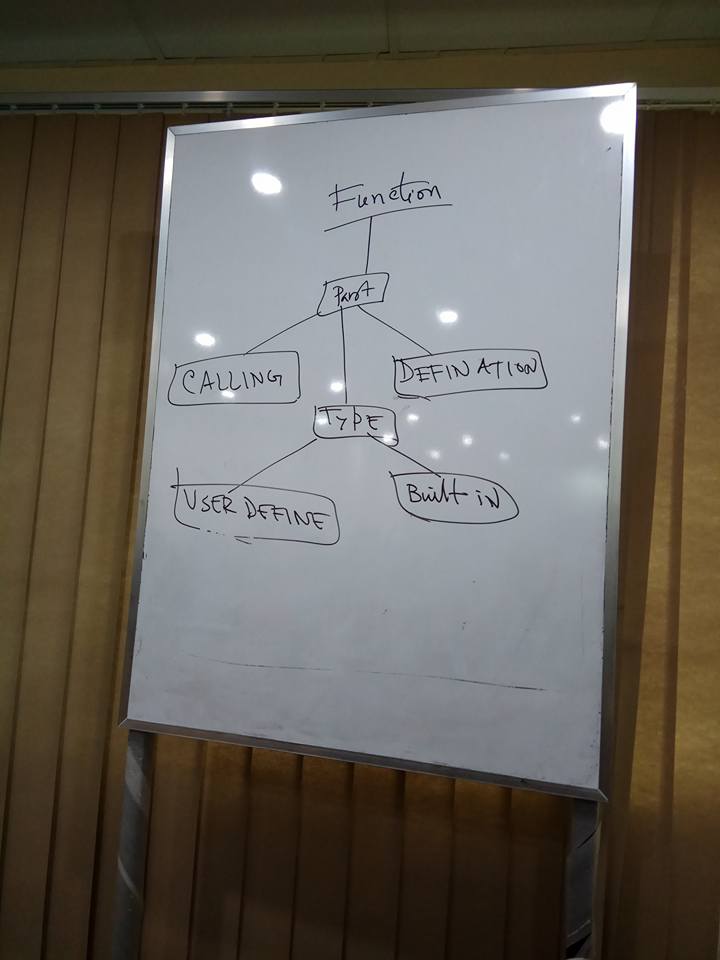 Function
Part
CALLING
DEFINATION
TYPE
USER DEFINE
Built in